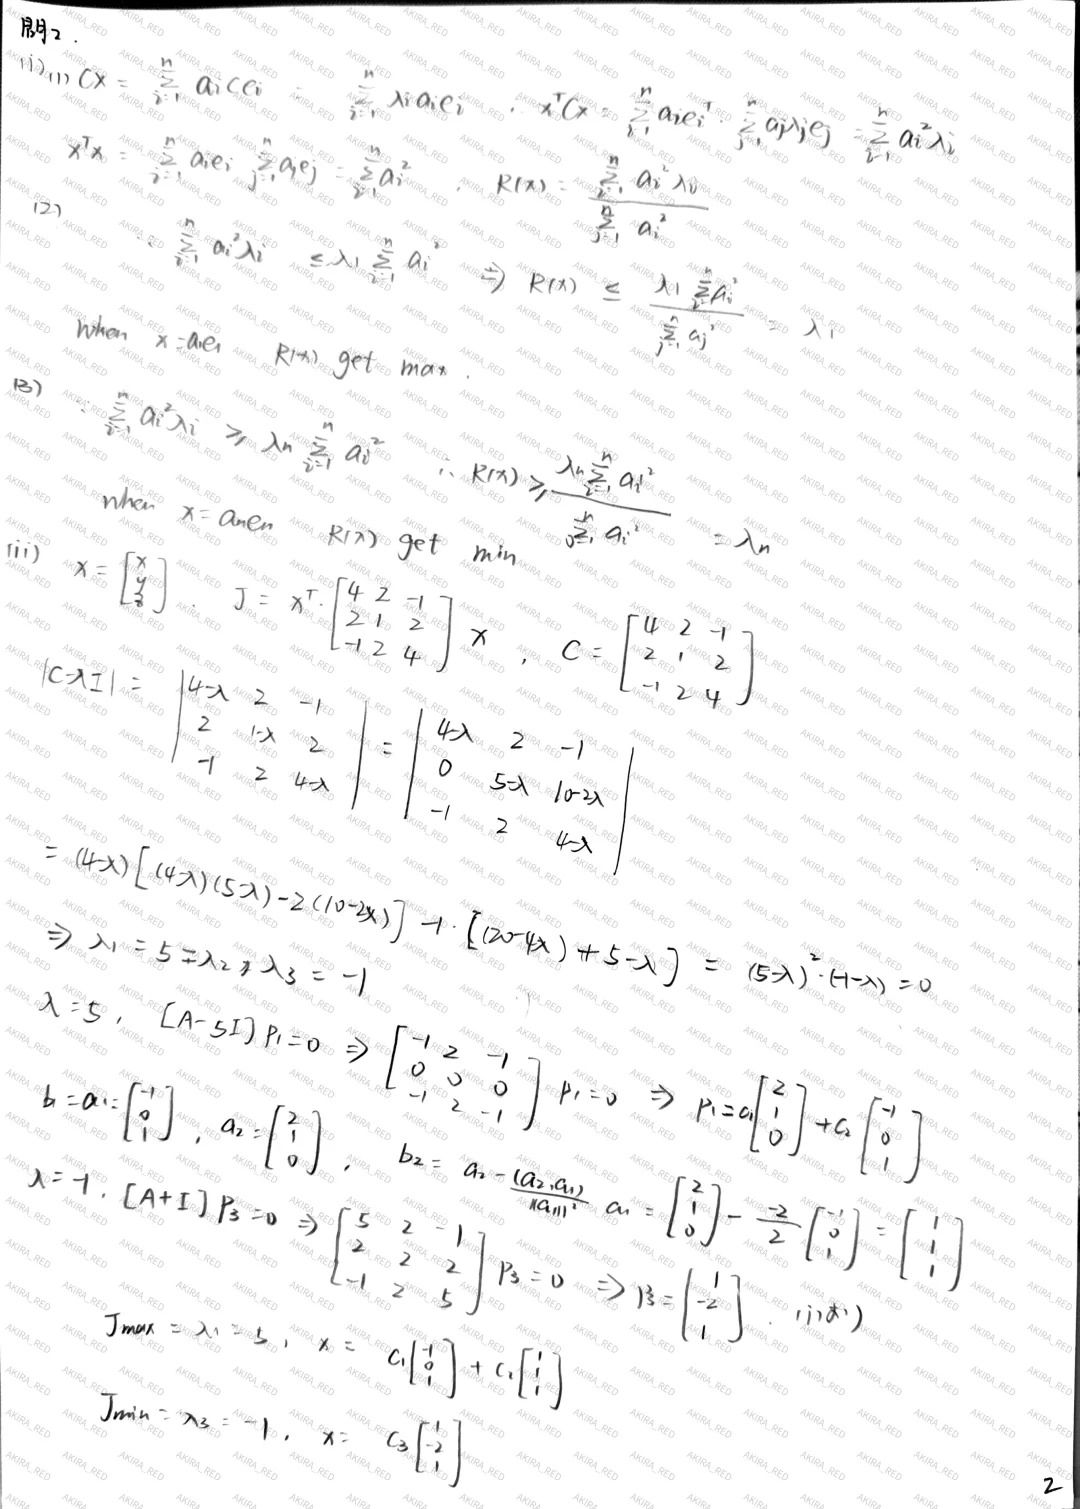 問2.
(i) (1) Cx = Σ_{i=1}^{n} aiCei = Σ_{i=1}^{n} λiaiei . xᵀCx = Σ_{i=1}^{n} aieiᵀ · Σ_{j=1}^{n} ajλjej = Σ_{i=1}^{n} ai²λi
xᵀx = Σ_{i=1}^{n} aiei Σ_{j=1}^{n} ajej = Σ_{i=1}^{n} ai² . R(x) = Σ_{i=1}^{n} ai²λi / Σ_{j=1}^{n} ai²
(2) ∵ Σ_{i=1}^{n} ai²λi ≤ λ1 Σ_{i=1}^{n} ai² ⇒ R(x) ≤ λ1 Σ_{i=1}^{n} ai² / Σ_{j=1}^{n} aj² = λ1
When x = a1e1 R(x) get max.
(3) ∵ Σ_{i=1}^{n} ai²λi ≥ λn Σ_{i=1}^{n} ai² ∴ R(x) ≥ λn Σ_{i=1}^{n} ai² / Σ_{i=1}^{n} ai² = λn
when x = anen R(x) get min
(ii) x = [x y z] . J = xᵀ· [4 2 -1; 2 1 2; -1 2 4] x , C = [4 2 -1; 2 1 2; -1 2 4]
|C-λI| = |4-λ 2 -1; 2 1-λ 2; -1 2 4-λ| = |4-λ 2 -1; 0 5-λ 10-2λ; -1 2 4-λ|
= (4-λ)[(4-λ)(5-λ)-2(10-2λ)] -1·[(20-4λ)+5-λ] = (5-λ)²·(-1-λ) = 0
⇒ λ1 = 5 = λ2, λ3 = -1
λ=5, [A-5I]P1=0 ⇒ [-1 2 -1; 0 0 0; -1 2 -1] P1=0 ⇒ P1=c1[2 1 0] + c2[-1 0 1]
b1=a1=[-1 0 1], a2=[2 1 0], b2= a2 - (a2,a1)/||a1||² a1 = [2 1 0] - -2/2 [-1 0 1] = [1 1 1]
λ=-1. [A+I]P3=0 ⇒ [5 2 -1; 2 2 2; -1 2 5] P3=0 ⇒ P3=[1 -2 1] . (i)より
Jmax = λ1 = 5, x = c1[-1 0 1] + c2[1 1 1]
Jmin = λ3 = -1, x = c3[1 -2 1]
2
AKIRA_RED